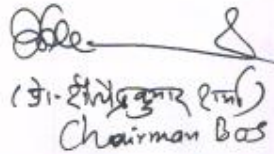 (डॉ. शैलेन्द्र कुमार शर्मा)
Chairman BOS